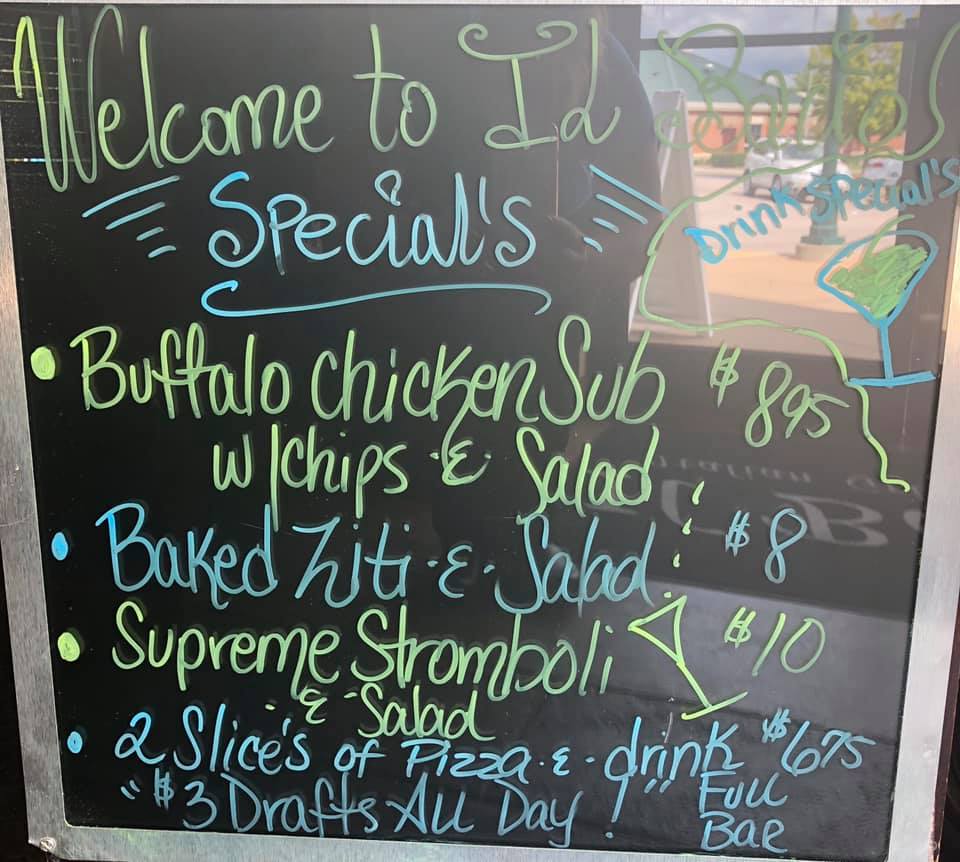 Welcome to I2
Special's
Drink Special's
• Buffalo Chicken Sub $895
w/chips & Salad
• Baked Ziti & Salad $8
• Supreme Stromboli $10
& Salad
• 2 Slice's of Pizza & drink $675
"$3 Drafts All Day!" Full
Bar